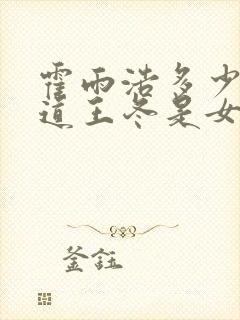 霍雨浩多少
道王冬是女
釜鈺